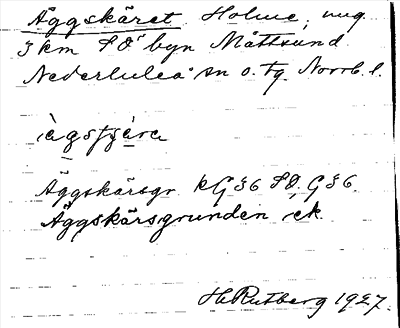 Äggskäret Holme, ung.
3 km SÖ byn Måttsund
Nederluleå sn o. tg. Norrb. l.
Äggskärsgr. kG36 SO. G36.
Äggskärsgrunden ek.
H. Rutberg 1927.